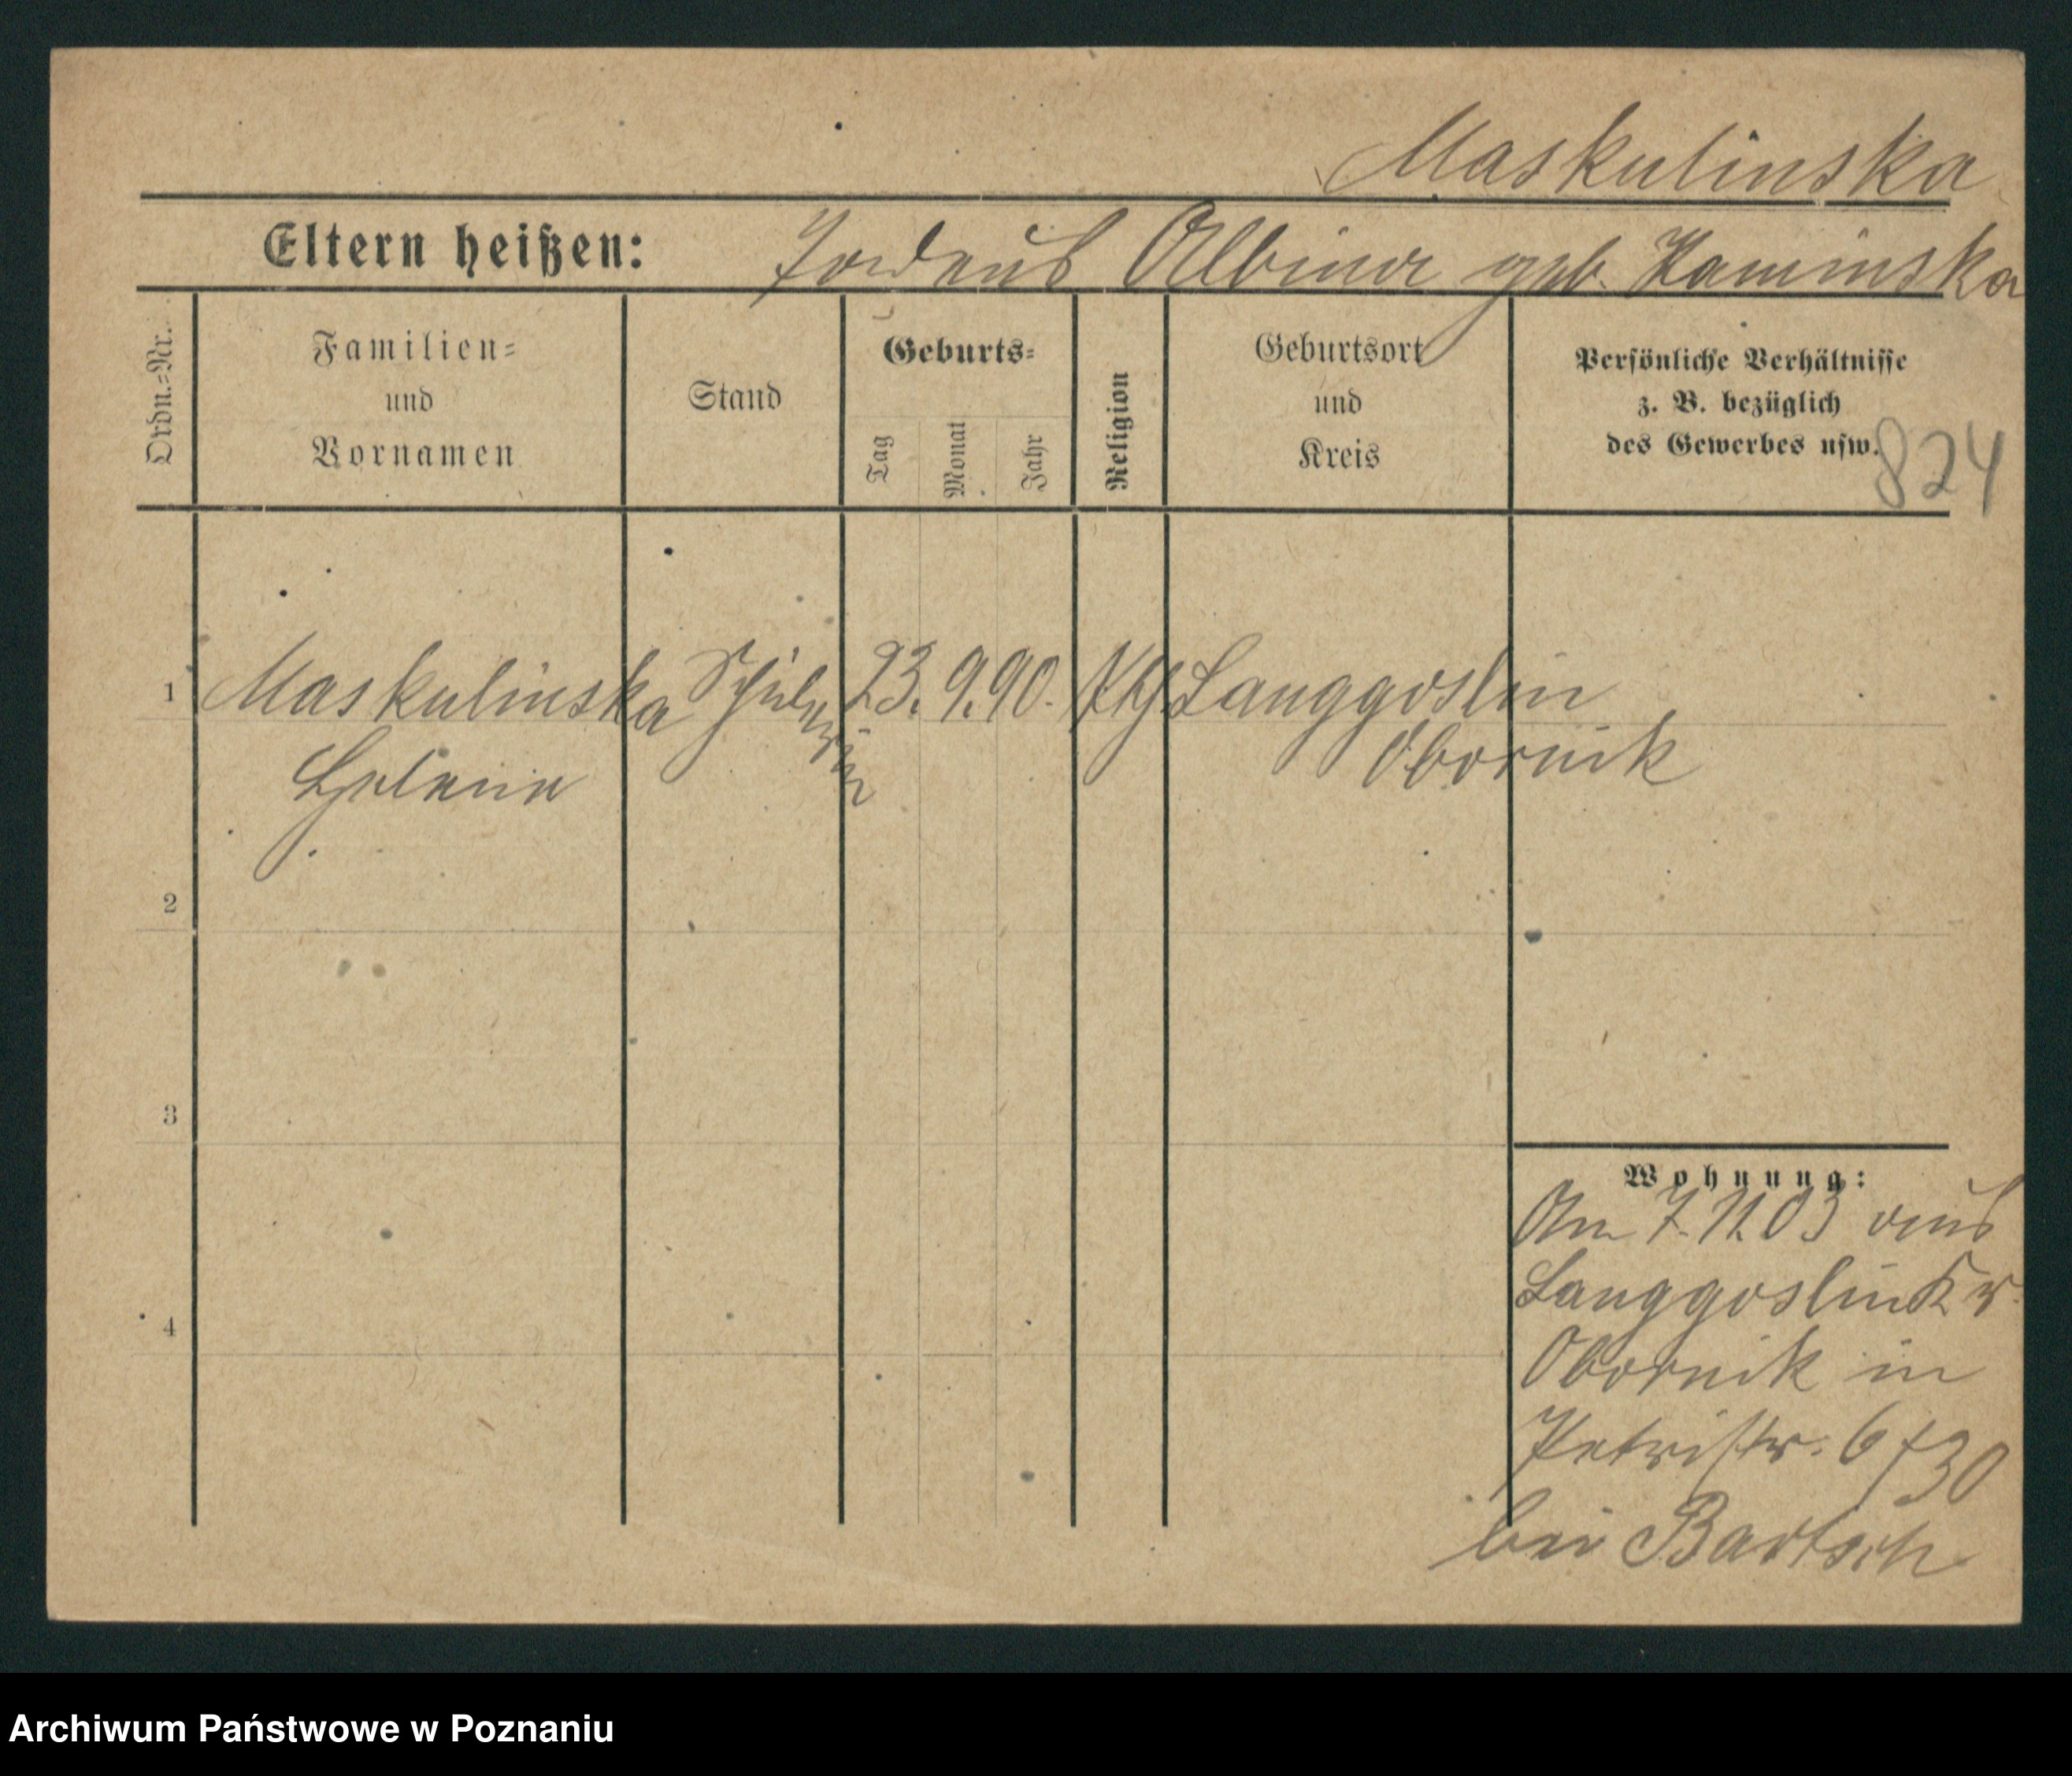 Maskulinska
Eltern heißen: Albina geb. Kaminska
Ordn.=Nr.
Familien=
und
Vornamen
Stand
Geburts=
Tag
Monat
Jahr
Religion
Geburtsort
und
Kreis
Persönliche Verhältnisse
z. B. bezüglich
des Gewerbes usw.
824
1 Maskulinska Schülerin 23. 9. 90. kth. Langgoslin
Helena Obornik
2
3
4
Wohnung:
Am 7.11.03 aus
Langgoslin Kr.
Obornik in
Petristr. 6
bei Bartsch
Archiwum Państwowe w Poznaniu